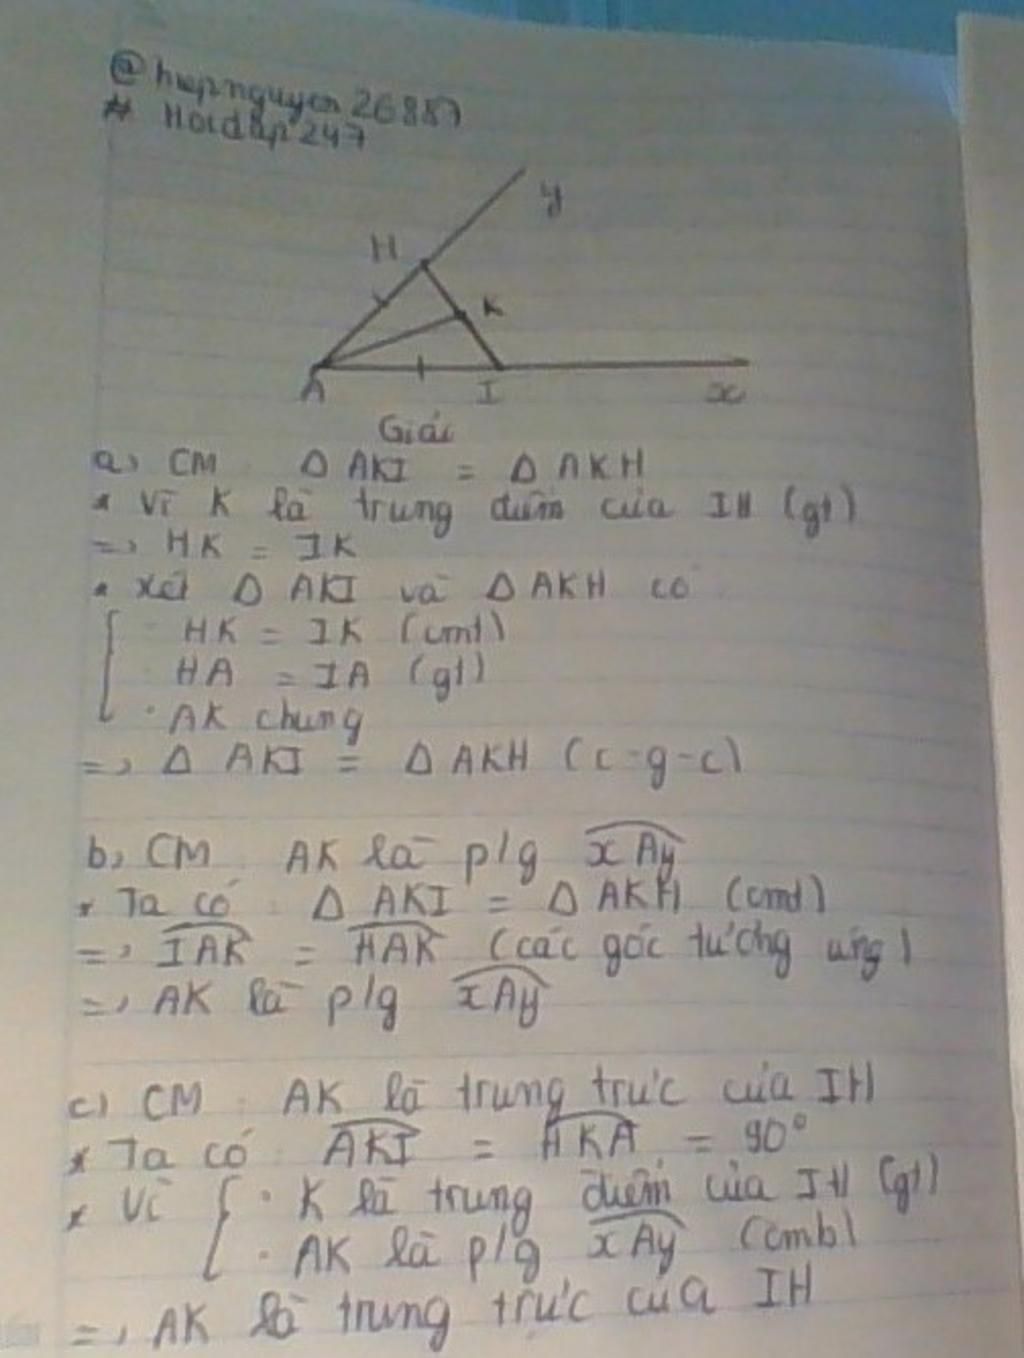 @hiepnguyen26887
# Hoidap247
y
H
K
A
I
x
Giải
a, CM Δ AKI = Δ AKH
* Vì K là trung điểm của IH (gt)
=> HK = IK
* Xét Δ AKI và Δ AKH có
HK = IK (cmt)
HA = IA (gt)
AK chung
=> Δ AKI = Δ AKH (c-g-c)
b, CM AK là p/g xAy
* Ta có Δ AKI = Δ AKH (cmt)
=> IAK = HAK (các góc tương ứng)
=> AK là p/g xAy
c) CM AK là trung trực của IH
* Ta có AKI = HKA = 90°
* Vì K là trung điểm của IH (gt)
AK là p/g xAy (cmb)
=> AK là trung trực của IH